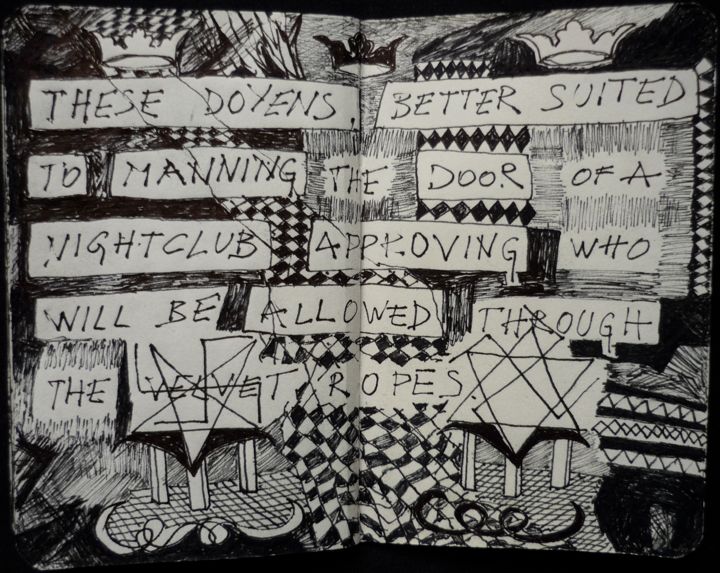 THESE DOYENS, BETTER SUITED
TO MANNING THE DOOR OF A
NIGHTCLUB APPROVING WHO
WILL BE ALLOWED THROUGH
THE VELVET ROPES.